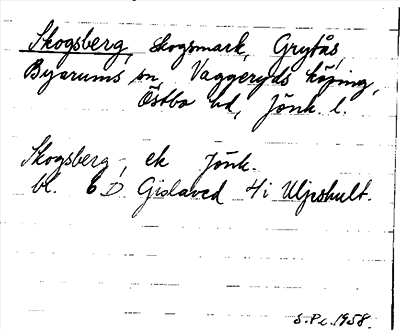 Skogsberg, skogsmark, Grytås,
Byarums sn, Vaggeryds köping,
Östbo hd, Jönk. l.
Skogsberg, ek Jönk.
bl. 6 D Gislaved 4i Uljeshult.
S.Pl. 1958.